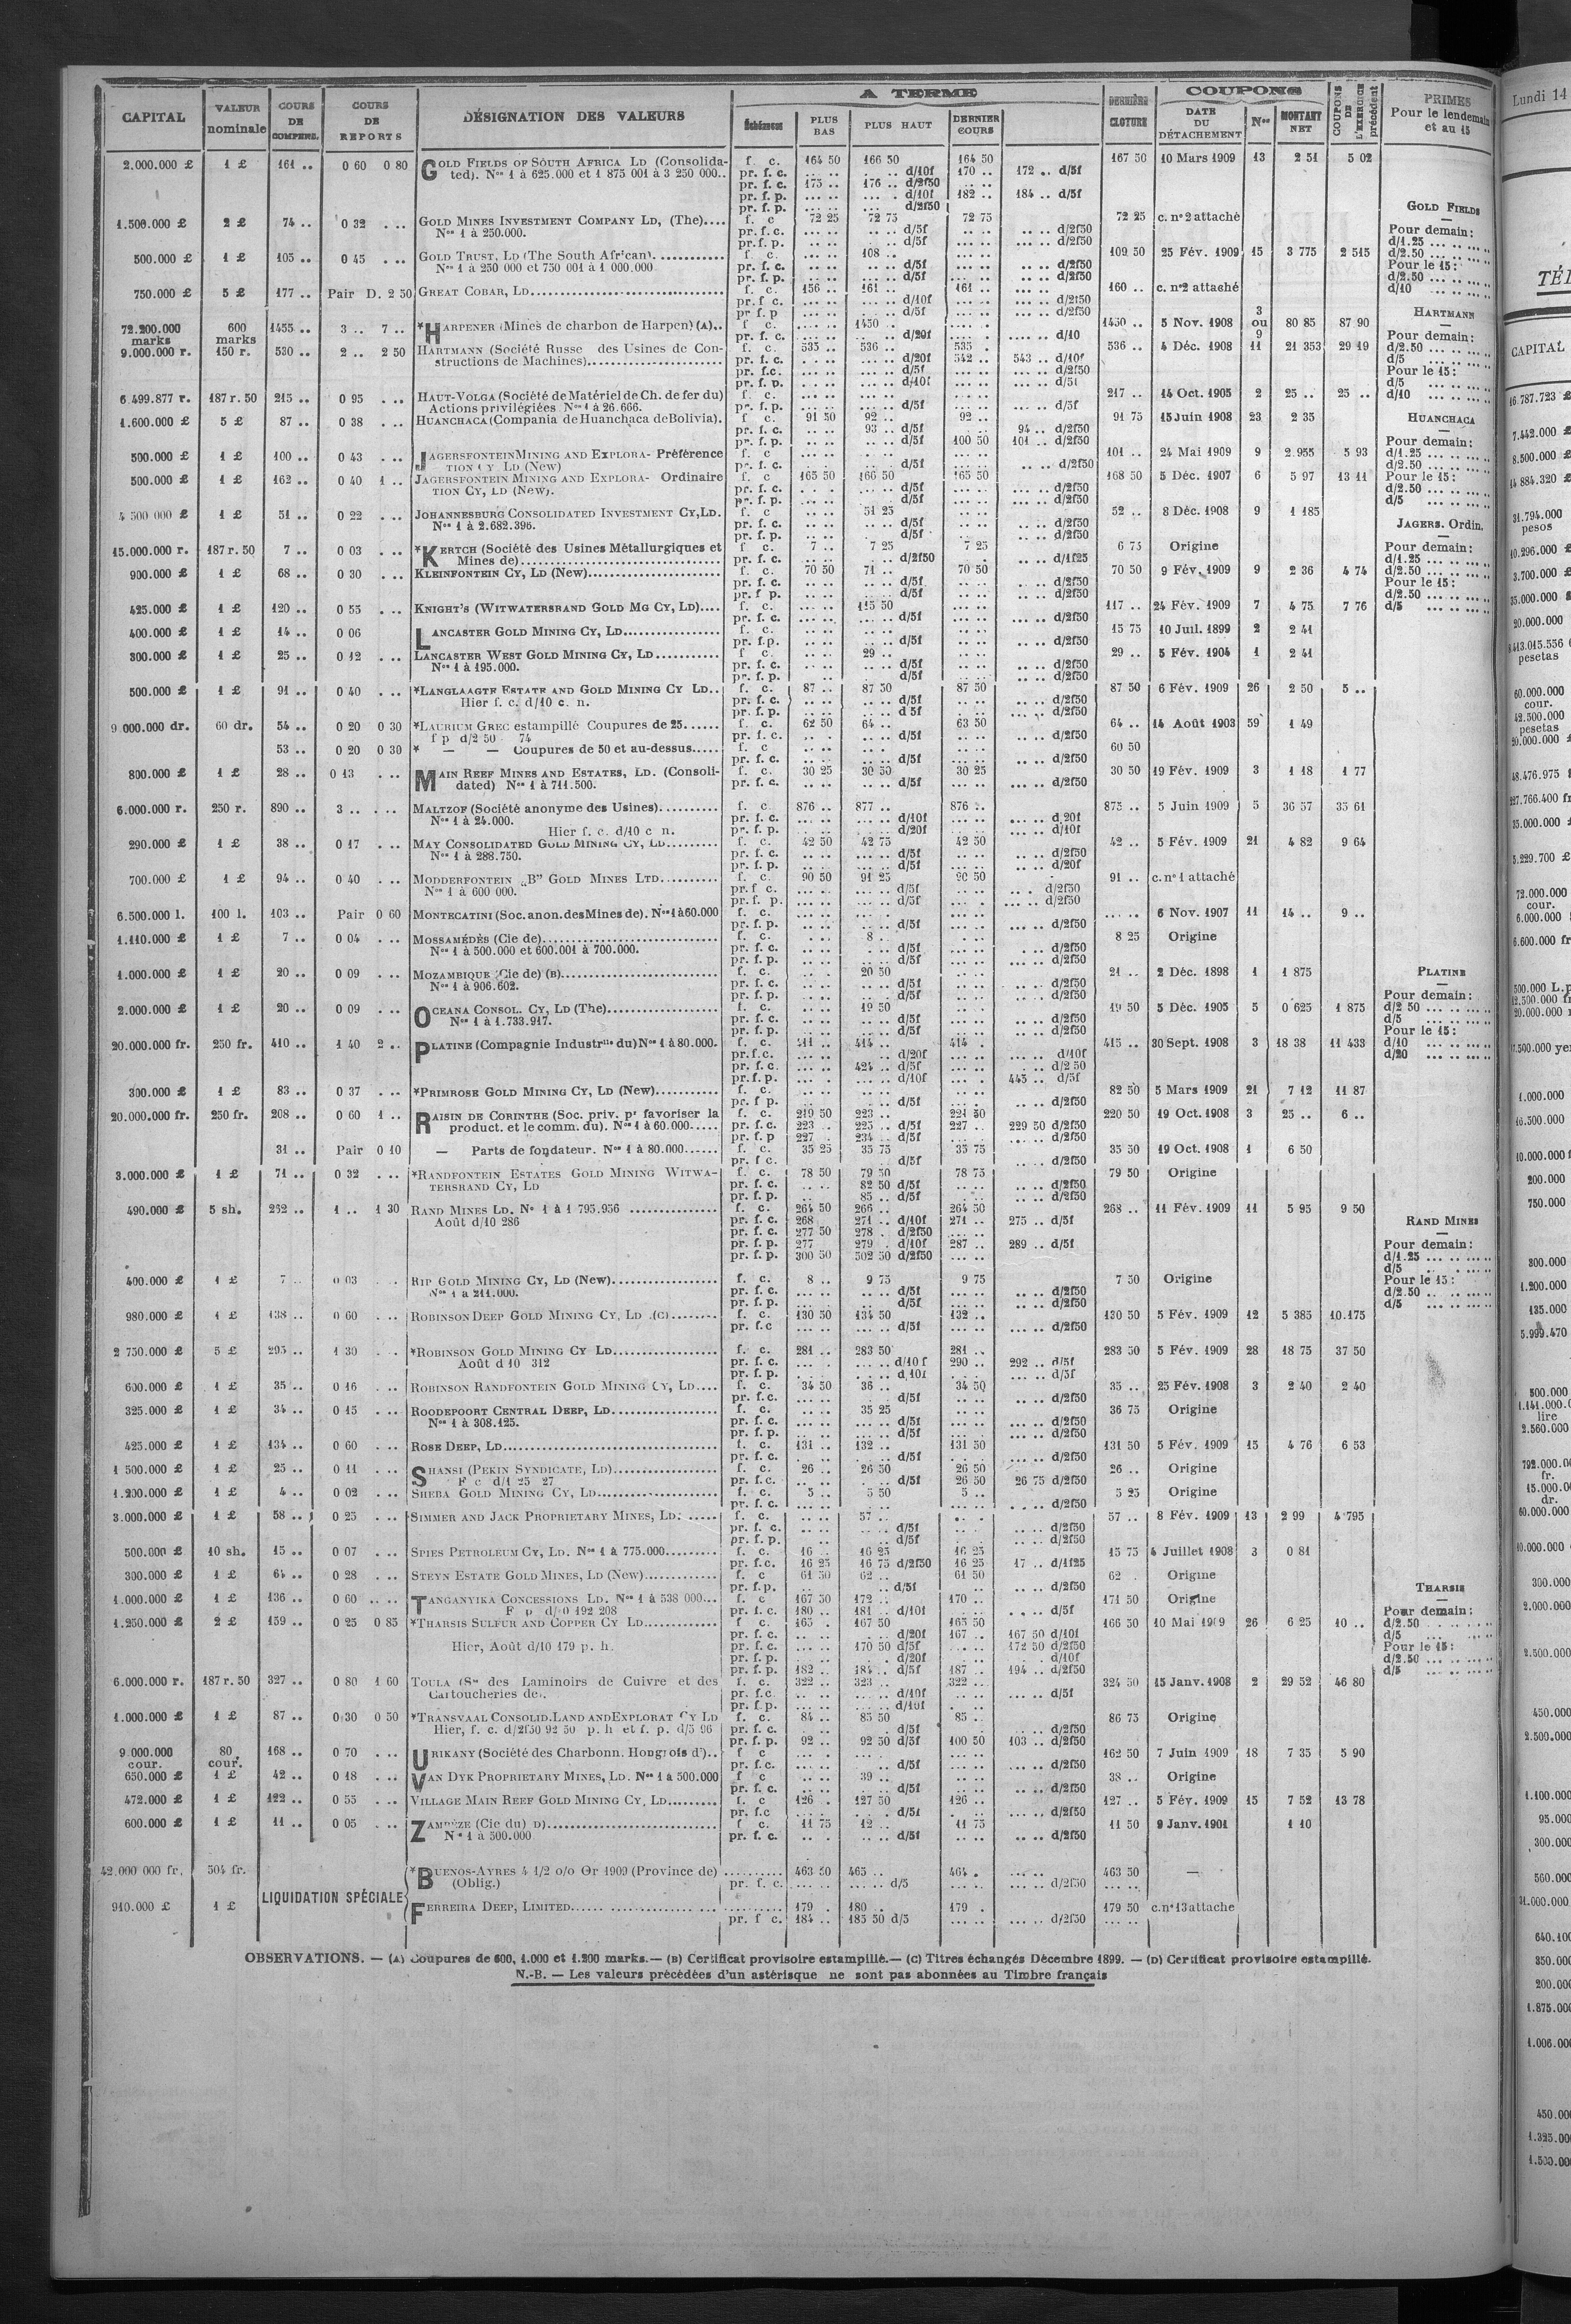 CAPITAL VALEUR nominale COURS DE COMPENS. COURS DE REPORTS DÉSIGNATION DES VALEURS A TERME Échéances PLUS BAS PLUS HAUT DERNIER COURS DERNIÈRE CLOTURE COUPONS DATE DU DÉTACHEMENT Nos MONTANT NET COUPONS DE L'EXERCICE précédent PRIMES Pour le lendemain et au 15
2.000.000 £ 1 £ 161 .. 0 60 0 80 GOLD FIELDS OF SOUTH AFRICA LD (Consolida- f. c. 164 50 166 50 164 50 167 50 10 Mars 1909 13 2 51 5 02
ted). Nos 1 à 625.000 et 1 875 001 à 3 250 000.. pr. f. c. d/10f 170 .. 172 .. d/5f
pr. f. c. 175 .. 176 .. d/2f50
pr. f. p. d/10f 182 .. 184 .. d/5f
pr. f. p. d/2f50
1.500.000 £ 2 £ 74 .. 0 32 GOLD MINES INVESTMENT COMPANY LD, (The).... f. c 72 25 72 75 72 75 72 25 c. n°2 attaché
Nos 1 à 250.000. pr. f. c. d/5f d/2f50
pr. f. p. d/5f d/2f50
500.000 £ 1 £ 105 .. 0 45 GOLD TRUST, LD (The South African). f. c. 108 .. 109 50 25 Fév. 1909 15 3 775 2 515
Nos 1 à 250 000 et 750 001 à 1 000.000 pr. f. c. d/5f d/2f50
pr. f. p. d/5f d/2f50
750.000 £ 5 £ 177 .. Pair D. 2 50 GREAT COBAR, LD f. c. 156 .. 161 .. 161 .. 160 .. c. n°2 attaché
pr. f c. d/10f d/2f50
pr f. p d/5f d/2f50
72.200.000 marks 600 marks 1455 .. 3 .. 7 .. *HARPENER (Mines de charbon de Harpen) (A).. f c. 1450 .. 1450 .. 5 Nov. 1908 3 ou 9 80 85 87 90
pr. f. c. d/20f d/10
9.000.000 r. 150 r. 530 .. 2 .. 2 50 HARTMANN (Société Russe des Usines de Con- f. c. 535 .. 536 .. 535 . 536 .. 4 Déc. 1908 11 21 353 29 19
structions de Machines) pr. f. c. d/20f 542 .. 543 .. d/10f
pr. f.c. d/5f d/2f50
pr. f. p. d/10f d/5f
6.499.877 r. 187 r. 50 215 .. 0 95 HAUT-VOLGA (Société de Matériel de Ch. de fer du) f. c. 217 .. 14 Oct. 1905 2 25 .. 25 ..
Actions privilégiées Nos 1 à 26.666. pr. f. p. d/5f d/5f
1.600.000 £ 5 £ 87 .. 0 38 HUANCHACA (Compania de Huanchaca de Bolivia). f c. 91 50 92 .. 92 .. 91 75 15 Juin 1908 23 2 35
pr. f. c. 93 .. d/5f 94 .. d/2f50
pr. f. p. d/5f 100 50 101 .. d/2f50
500.000 £ 1 £ 100 .. 0 43 JAGERSFONTEIN MINING AND EXPLORA- Préférence f. c 101 .. 24 Mai 1909 9 2.955 5 93
TION CY LD (New) pr. f. c. d/5f d/2f50
500.000 £ 1 £ 162 .. 0 40 1 .. JAGERSFONTEIN MINING AND EXPLORA- Ordinaire f. c 165 50 166 50 165 50 168 50 5 Déc. 1907 6 5 97 13 11
TION CY, LD (New). pr. f. c. d/5f d/2f50
pr. f. p. d/5f d/2f50
4 500 000 £ 1 £ 51 .. 0 22 JOHANNESBURG CONSOLIDATED INVESTMENT CY, LD. f. c 51 25 52 .. 8 Déc. 1908 9 1 185
Nos 1 à 2.682.396. pr. f. c. d/5f d/2f50
pr. f. p. d/5f d/2f50
15.000.000 r. 187 r. 50 7 .. 0 03 *KERTCH (Société des Usines Métallurgiques et f c. 7 .. 7 25 7 25 6 75 Origine
Mines de) pr. f. c. d/2f50 d/1f25
900.000 £ 1 £ 68 .. 0 30 KLEINFONTEIN CY, LD (New) f. c. 70 50 71 .. 70 50 70 50 9 Fév. 1909 9 2 36 4 74
pr. f. c. d/5f d/2f50
pr. f p. d/5f d/2f50
425.000 £ 1 £ 120 .. 0 55 KNIGHT'S (WITWATERSRAND GOLD MG CY, LD).... f. c. 115 50 117 .. 24 Fév. 1909 7 4 75 7 76
pr. f. c. d/5f d/2f50
400.000 £ 1 £ 14 .. 0 06 LANCASTER GOLD MINING CY, LD f. c. 15 75 10 Juil. 1899 2 2 41
pr. f.p. d/5f d/2f50
300.000 £ 1 £ 25 .. 0 12 LANCASTER WEST GOLD MINING CY, LD f c. 29 .. 29 .. 5 Fév. 1904 1 2 41
Nos 1 à 195.000. pr. f. c. d/5f d/2f50
pr. f. p. d/5f d/2f50
500.000 £ 1 £ 91 .. 0 40 *LANGLAAGTE ESTATE AND GOLD MINING CY LD.. f. c. 87 .. 87 50 87 50 87 50 6 Fév. 1909 26 2 50 5 ..
Hier f. c. d/10 c. n. pr. f. c. d/5f d/2f50
pr. f. p. d 5f d/2f50
9 000.000 dr. 60 dr. 54 .. 0 20 0 30 *LAURIUM GREC estampillé Coupures de 25 f. c. 62 50 64 .. 63 50 64 .. 14 Août 1903 59 1 49
f p d/2 50 74 pr. f. c. d/5f d/2f50
53 .. 0 20 0 30 * — — Coupures de 50 et au-dessus f. c 60 50
pr. f. c. d/5f d/2f50
800.000 £ 1 £ 28 .. 0 13 MAIN REEF MINES AND ESTATES, LD. (Consoli- f. c. 30 25 30 50 30 25 30 50 19 Fév. 1909 3 1 18 1 77
dated) Nos 1 à 711.500. pr. f. c. d/5f d/2f50
6.000.000 r. 250 r. 890 .. 3 .. MALTZOF (Société anonyme des Usines) f. c 876 .. 877 .. 876 .. 875 .. 5 Juin 1909 5 36 57 35 61
Nos 1 à 24.000. pr. f. c. d/10f d 20f
Hier f. c. d/10 c n. pr. f. p. d/20f d/10f
290.000 £ 1 £ 38 .. 0 17 MAY CONSOLIDATED GOLD MINING CY, LD f. c. 42 50 42 75 42 50 42 .. 5 Fév. 1909 21 4 82 9 64
Nos 1 à 288.750. pr. f. c. d/5f d/2f50
pr. f. p. d/5f d/20f
700.000 £ 1 £ 94 .. 0 40 MODDERFONTEIN „B" GOLD MINES LTD f. c. 90 50 91 25 90 50 91 .. c. n° 1 attaché
Nos 1 à 600 000. pr. f c. d/5f d/2f50
pr. f. p. d/5f d/2f50
6.500.000 l. 100 l. 103 .. Pair 0 60 MONTECATINI (Soc. anon. des Mines de). Nos 1 à 60.000 f. c. 6 Nov. 1907 11 14 .. 9 ..
pr. f. p. d/5f d/2f50
1.110.000 £ 1 £ 7 .. 0 04 MOSSAMÉDÈS (Cie de) f. c. 8 . 8 25 Origine
Nos 1 à 500.000 et 600.001 à 700.000. pr. f. c. d/5f d/2f50
pr. f. p. d/5f d/2f50
1.000.000 £ 1 £ 20 .. 0 09 MOZAMBIQUE (Cie de) (B) f. c. 20 50 21 .. 2 Déc. 1898 1 1 875
Nos 1 à 906.602. pr. f. c. d/5f d/2f50
pr. f. p. d/5f d/2f50
2.000.000 £ 1 £ 20 .. 0 09 OCEANA CONSOL. CY, LD (The) f. c. 19 50 19 50 5 Déc. 1905 5 0 625 1 875
Nos 1 à 1.733.917. pr. f. c. d/5f d/2f50
pr. f. p. d/5f d/2f50
20.000.000 fr. 250 fr. 410 .. 1 40 2 .. PLATINE (Compagnie Industrlle du) Nos 1 à 80.000. f. c. 411 .. 414 .. 414 . 415 .. 30 Sept. 1908 3 18 38 11 433
pr. f.c. d/20f d/10f
pr. f. c. 424 .. d/5f d/2 50
pr. f. p. d/10f 445 .. d/5f
300.000 £ 1 £ 83 .. 0 37 *PRIMROSE GOLD MINING CY, LD (New) f. c. 82 50 5 Mars 1909 21 7 12 11 87
pr. f p. d/5f d/2f50
20.000.000 fr. 250 fr. 208 .. 0 60 1 .. RAISIN DE CORINTHE (Soc. priv. pr favoriser la f. c. 219 50 223 .. 221 50 220 50 19 Oct. 1908 3 25 .. 6 ..
product. et le comm. du). Nos 1 à 60.000 pr. f. c. 223 .. 225 .. d/5f 227 .. 229 50 d/2f50
pr. f. p 227 . 234 .. d/5f d/2f50
31 .. Pair 0 10 — Parts de fondateur. Nos 1 à 80.000 f. c. 35 25 35 75 35 75 35 50 19 Oct. 1908 1 6 50
pr. f c. d/5f d/2f50
3.000.000 £ 1 £ 71 .. 0 32 *RANDFONTEIN ESTATES GOLD MINING WITWA- f. c. 78 50 79 50 78 75 79 50 Origine
TERSRAND CY, LD pr. f. c. 82 50 d/5f d/2f50
pr. f. p. 85 .. d/5f d/2f50
490.000 £ 5 sh. 262 .. 1 .. 1 30 RAND MINES LD. No 1 à 1 795.956 f. c. 264 50 266 .. 264 50 268 .. 11 Fév. 1909 11 5 95 9 50
Août d/10 286 pr. f. c. 268 271 .. d/10f 271 .. 275 .. d/5f
pr. f. c. 277 50 278 . d/2f50
pr. f. p. 277 279 . d/10f 287 .. 289 .. d/5f
pr. f. p. 300 50 302 50 d/2f50
400.000 £ 1 £ 7 .. 0 03 RIP GOLD MINING CY, LD (New) f. c. 8 .. 9 75 9 75 7 50 Origine
Nos 1 à 211.000. pr. f. c. d/5f d/2f50
pr. f. p. d/5f d/2f50
980.000 £ 1 £ 138 .. 0 60 ROBINSON DEEP GOLD MINING CY, LD (C) f. c. 130 50 134 50 132 .. 130 50 5 Fév. 1909 12 5 385 10.175
pr. f.c d/5f d/2f50
2 750.000 £ 5 £ 295 .. 1 30 *ROBINSON GOLD MINING CY LD f. c. 281 .. 283 50 281 .. 283 50 5 Fév. 1909 28 18 75 37 50
Août d 10 312 pr. f. c. d/10 f 290 .. 292 .. d/5f
pr. f. p. d.10f d/5f
600.000 £ 1 £ 35 .. 0 16 ROBINSON RANDFONTEIN GOLD MINING CY, LD.... f. c. 34 50 36 .. 34 50 35 .. 25 Fév. 1908 3 2 40 2 40
pr. f.c. d/5f d/2f50
325.000 £ 1 £ 34 .. 0 15 ROODEPOORT CENTRAL DEEP, LD f. c. 35 25 36 75 Origine
Nos 1 à 308.125. pr. f. c. d/5f d/2f50
pr. f. p. d/5f d/2f50
425.000 £ 1 £ 134 .. 0 60 ROSE DEEP, LD f. c. 131 .. 132 .. 131 50 131 50 5 Fév. 1909 15 4 76 6 53
pr. f. c. d/5f d/2f50
1 500.000 £ 1 £ 25 .. 0 11 SHANSI (PEKIN SYNDICATE, LD) f. c. 26 .. 26 50 26 50 26 .. Origine
F c d/1 25 27 pr. f.c. d/5f 26 50 26 75 d/2f50
1.200.000 £ 1 £ 4 .. 0 02 SHEBA GOLD MINING CY, LD f. c 5 .. 5 50 5 .. 5 25 Origine
pr. f. c. d/2f50
3.000.000 £ 1 £ 58 .. 0 25 SIMMER AND JACK PROPRIETARY MINES, LD. f. c. 57 .. 57 .. 8 Fév. 1909 13 2 99 4 795
pr. f. c. d/5f d/2f50
pr. f. p. d/5f d/2f50
500.000 £ 10 sh. 15 .. 0 07 SPIES PETROLEUM CY, LD. Nos 1 à 775.000 f. c. 16 .. 16 25 16 25 15 75 4 Juillet 1908 3 0 81
pr. f.c. 16 25 16 75 d/2f50 16 25 17 .. d/1f25
300.000 £ 1 £ 64 .. 0 28 STEYN ESTATE GOLD MINES, LD (New) f. c 61 50 62 .. 61 50 62 . Origine
pr. f.p. d/5f d/2f50
1.000.000 £ 1 £ 136 .. 0 60 TANGANYIKA CONCESSIONS LD. Nos 1 à 538 000... f c 167 50 172 .. 170 .. 171 50 Origine
F p d/10 192 208 pr. f. c. 180 .. 181 .. d/10f d/5f
1.250.000 £ 2 £ 159 .. 0 25 0 85 *THARSIS SULFUR AND COPPER CY LD f. c. 165 . 167 50 165 50 166 50 10 Mai 1909 26 6 25 10 ..
pr. f. c. d/20f 167 .. 167 50 d/10f
Hier, Août d/10 179 p. h. pr. f. c. 170 50 d/5f 172 50 d/2f50
pr. f. p. d/20f d/10f
pr. f. p. 182 .. 184 .. d/5f 187 .. 194 .. d/2f50
6.000.000 r. 187 r. 50 327 .. 0 80 1 60 TOULA (Sté des Laminoirs de Cuivre et des f. c. 322 .. 323 .. 322 .. 324 50 15 Janv. 1908 2 29 52 46 80
Cartoucheries de). pr. f.c. d/10f d/5f
pr. f.p. d/10f
1.000.000 £ 1 £ 87 .. 0 30 0 50 *TRANSVAAL CONSOLID. LAND AND EXPLORAT CY LD f. c. 84 .. 85 50 85 .. 86 75 Origine
Hier, f. c. d/2f50 92 50 p. h et f. p. d/5 96 pr. f. c. d/5f d/2f50
pr. f. p. 92 .. 92 50 d/5f 100 50 103 .. d/2f50
9.000.000 cour. 80 cour. 168 .. 0 70 URIKANY (Société des Charbonn. Hongrois d').. f c 162 50 7 Juin 1909 18 7 35 5 90
pr. f.c. d/5f d/2f50
650.000 £ 1 £ 42 .. 0 18 VAN DYK PROPRIETARY MINES, LD. Nos 1 à 500.000 f. c 39 .. 38 .. Origine
pr. f. c. d/5f d/2f50
472.000 £ 1 £ 122 .. 0 55 VILLAGE MAIN REEF GOLD MINING CY, LD f. c 126 . 127 50 126 .. 127 .. 5 Fév. 1909 15 7 52 13 78
pr. f.c d/5f d/2f50
600.000 £ 1 £ 11 .. 0 05 ZAMBÈZE (Cie du) D) f. c. 11 75 12 .. 11 75 11 50 9 Janv. 1901 1 10
Nos 1 à 500.000 pr. f. c. d/5f d/2f50
42.000 000 fr. 504 fr. *BUENOS-AYRES 4 1/2 o/o Or 1909 (Province de) 463 50 465 .. 464 . 463 50 —
(Oblig.) pr. f. c. d/5 d/2f50
LIQUIDATION SPÉCIALE
910.000 £ 1 £ FERREIRA DEEP, LIMITED 179 . 180 .. 179 . 179 50 c. n° 13 attache
pr. f c. 184 .. 185 50 d/5 d/2f50
GOLD FIELDS
Pour demain:
d/1.25
d/2.50
Pour le 15:
d/2.50
d/10
HARTMANN
Pour demain:
d/2.50
d/5
Pour le 15:
d/5
d/10
HUANCHACA
Pour demain:
d/1.25
d/2.50
Pour le 15:
d/2.50
d/5
JAGERS. Ordin.
Pour demain:
d/1.25
d/2.50
Pour le 15:
d/2.50
d/5
PLATINE
Pour demain:
d/2 50
d/5
Pour le 15:
d/10
d/20
RAND MINES
Pour demain:
d/1.25
d/5
Pour le 15:
d/2.50
d/5
THARSIS
Pour demain:
d/2.50
d/5
Pour le 15:
d/2.50
d/5
OBSERVATIONS. — (A) Coupures de 600, 1.000 et 1.200 marks. — (B) Certificat provisoire estampillé. — (C) Titres échangés Décembre 1899. — (D) Certificat provisoire estampillé.
N.-B. — Les valeurs précédées d'un astérisque ne sont pas abonnées au Timbre français
Lundi 14
CAPITAL